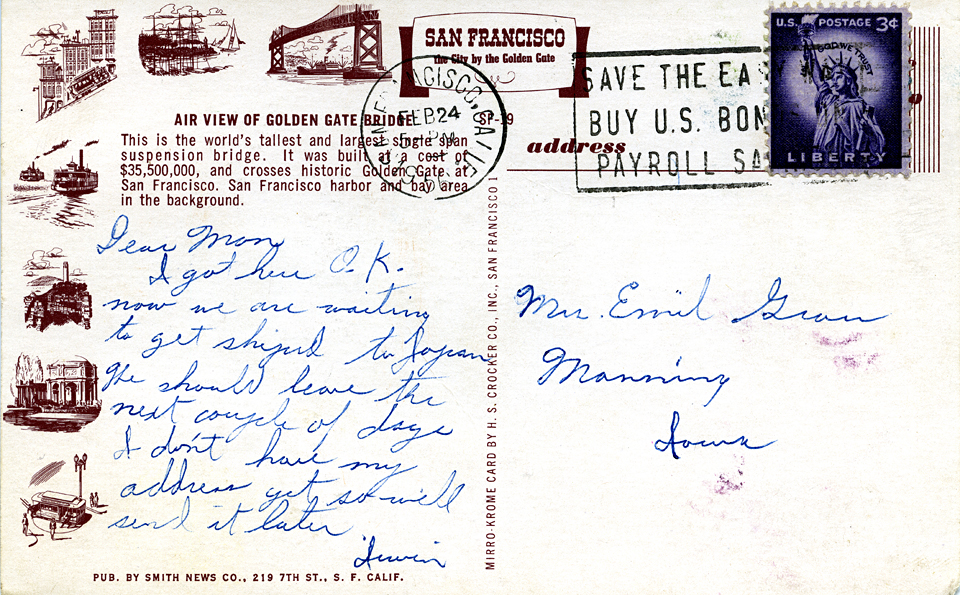 SAN FRANCISCO
the City by the Golden Gate
U.S. POSTAGE 3¢
IN GOD WE TRUST
LIBERTY
FEB 24
SAVE THE EA
BUY U.S. BON
PAYROLL SA
AIR VIEW OF GOLDEN GATE BRIDGE
This is the world's tallest and largest single span
suspension bridge. It was built at a cost of
$35,500,000, and crosses historic Golden Gate at
San Francisco. San Francisco harbor and bay area
in the background.
address
Dear Mom
I got here O.K.
now we are waiting
to get shipped to Japan
We should leave the
next couple of days
I don't have my
address yet so will
send it later
Irwin
Emil
Manning
Iowa
MIRRO-KROME CARD BY H. S. CROCKER CO., INC., SAN FRANCISCO 1
PUB. BY SMITH NEWS CO., 219 7TH ST., S. F. CALIF.